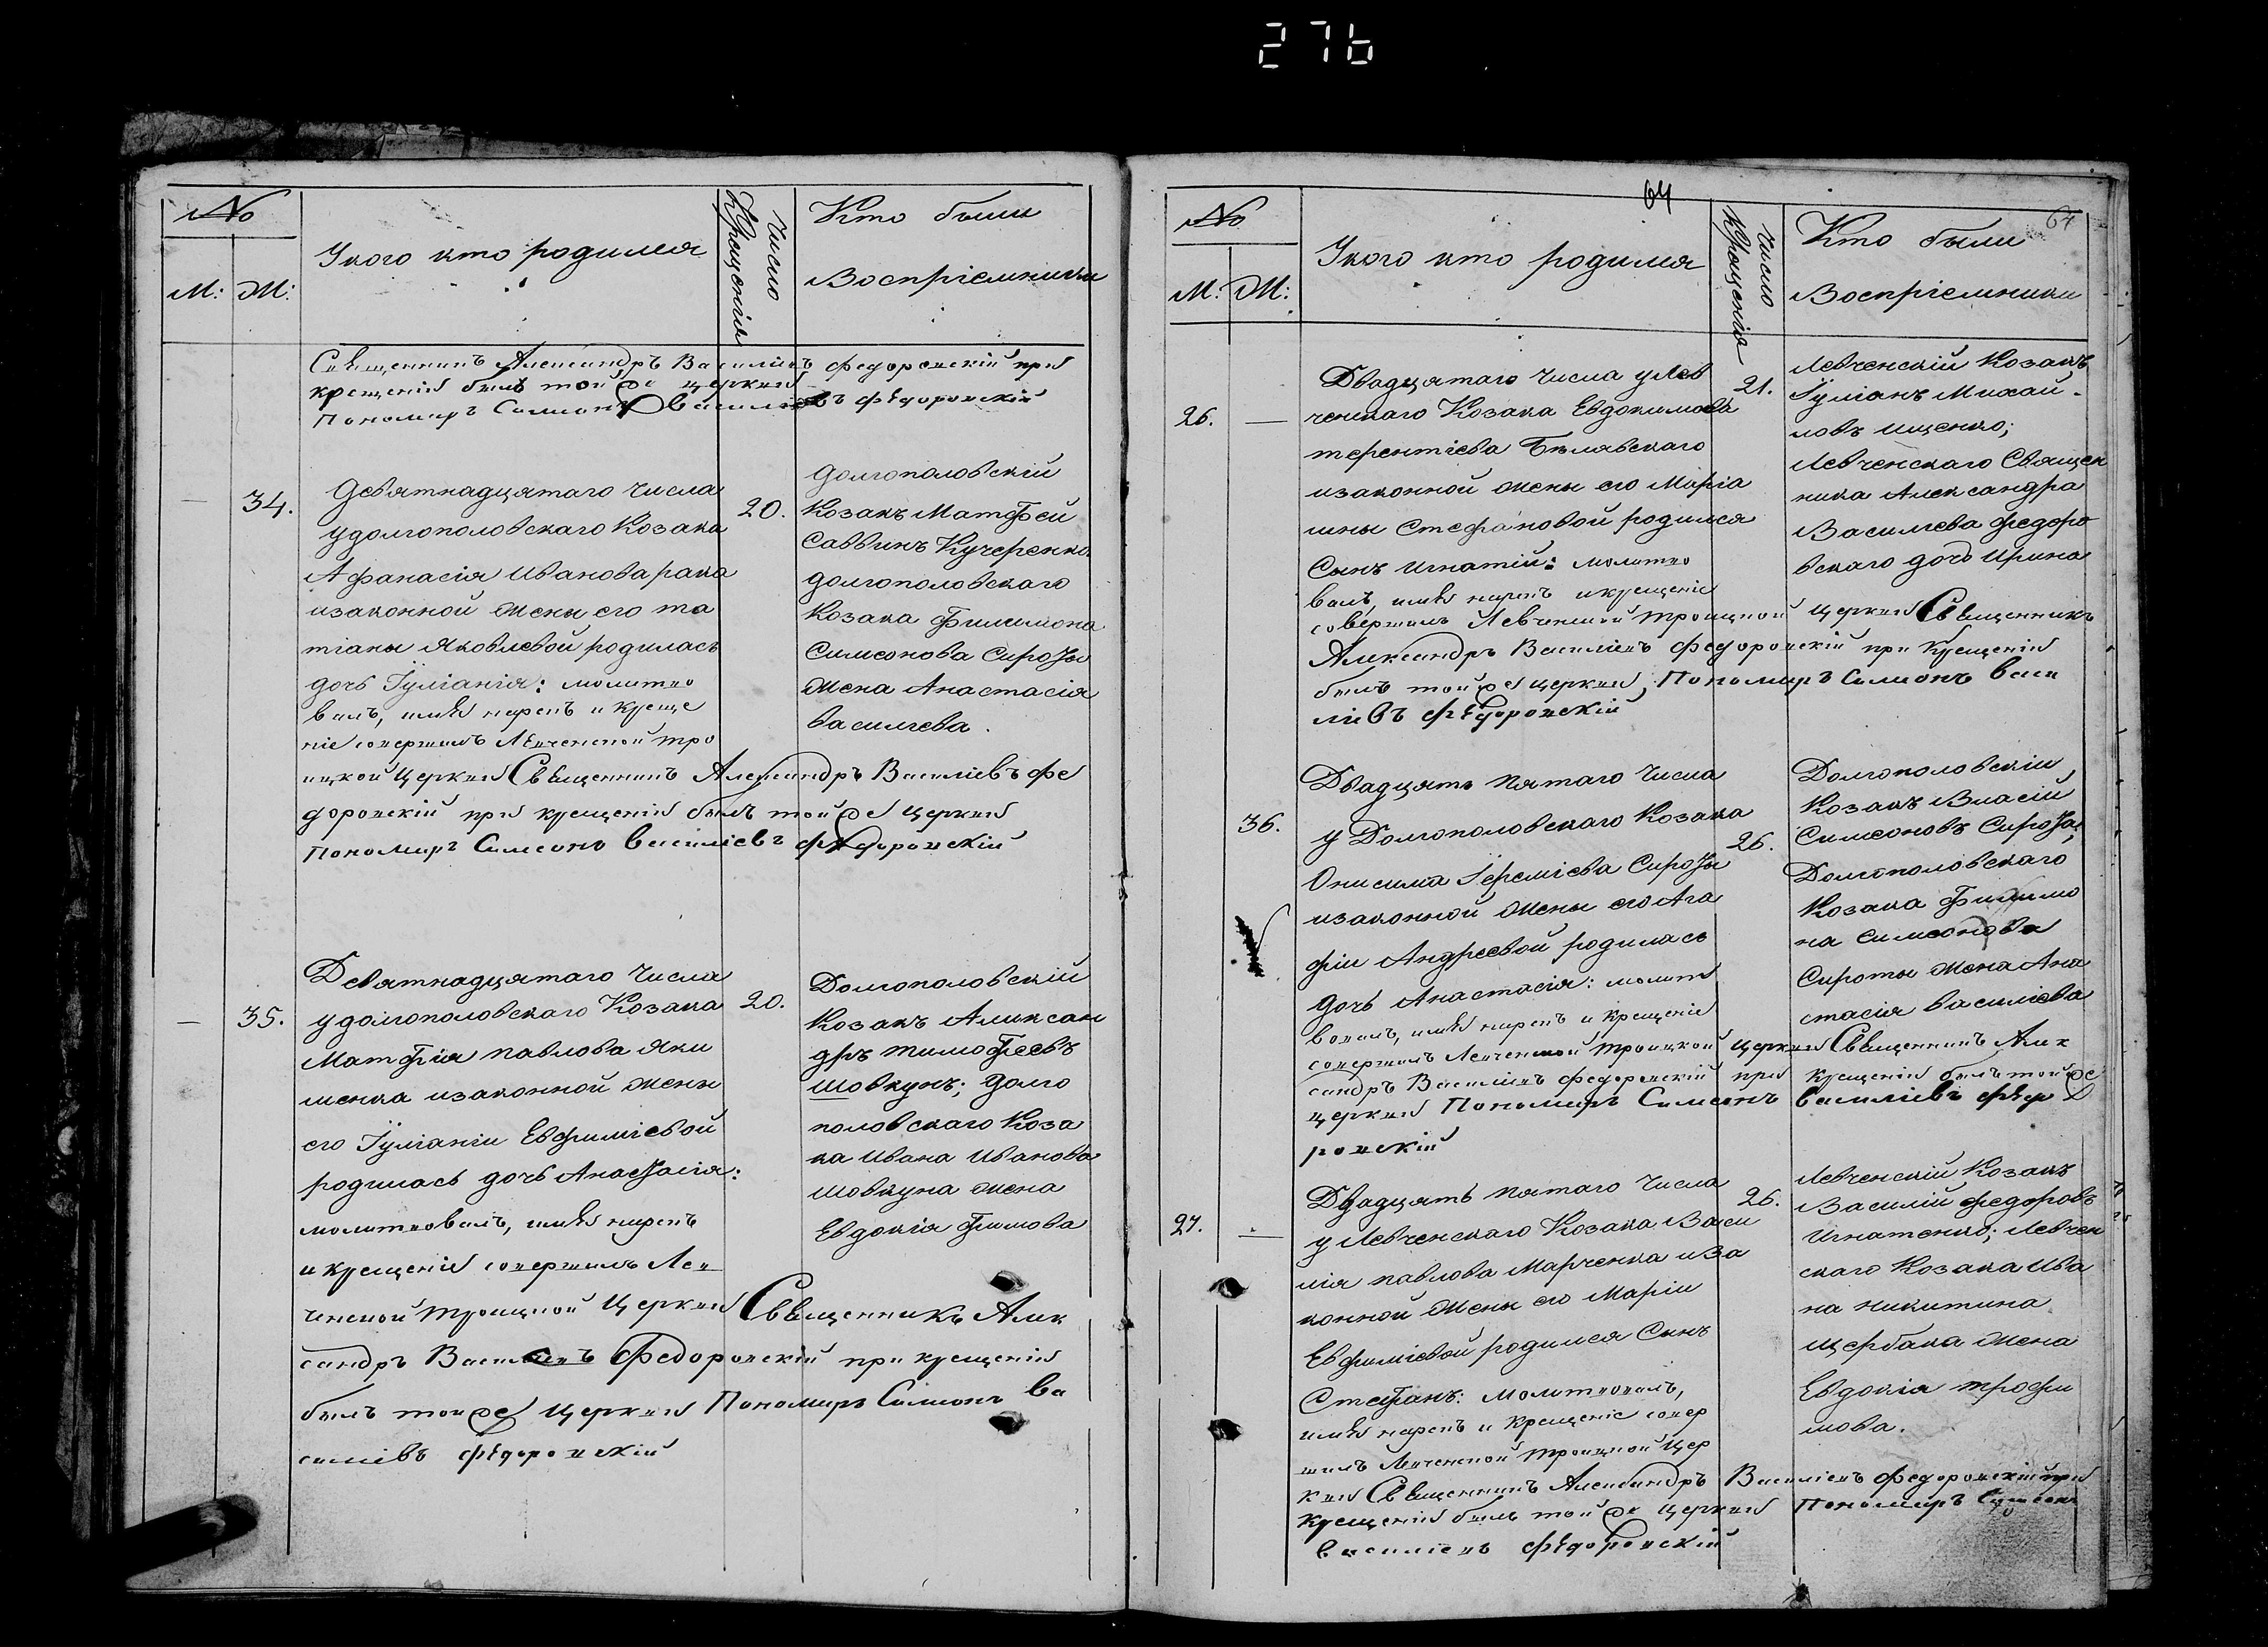 276
№
М: Ж:
У кого кто родился
Число Крещенія
Кто были
Воспріемники
Священникъ Александръ Василіевъ Федоровскій при
крещеніи былъ той же церкви
Пономаръ Симеонъ Василіевъ Федоровскій
— 34.
Девятнадцатаго числа
у долгополовскаго Козака
Афанасія Иванова рака
изаконной жены его та
тіаны Яковлевой родилась
дочь Іуліанія: молитво
валъ, имя нарекъ и креще
ніе совершилъ Левченской тро
ицкой Церкви Священникъ Александръ Василіевъ Фе
доровскій при крещеніи былъ той же церкви
Пономаръ Симеонъ Василіевъ Федоровскій
20.
долгополовскій
Козакъ Матѳей
Саввинъ Кучеренко
долгополовскаго
Козака Филимона
Симеонова Сироты
жена Анастасія
Василіева.
— 35.
Девятнадцятаго числа
у долгополовскаго Козака
Матѳія павлова Яки
менка изаконной жены
его Іуліаніи Евфиміевой
родилась дочь Анастасія:
молитвовалъ, имя нарекъ
и крещеніе совершилъ Лев
ченской Троицкой Церкви Священникъ Алек
сандръ Василіевъ Федоровскій при крещеніи
былъ той же Церкви Пономаръ Симеонъ Ва
силіевъ Федоровскій
20.
Долгополовскій
Козакъ Алексан
дръ тимоѳеевъ
Шовкунъ; Долго
половскаго Коза
ка Ивана Иванова
Шовкуна жена
Евдокія
64
64
№
М: Ж:
У кого кто родился
Число Крещенія
Кто были
Воспріемники
26. —
Двадцятаго числа у Лев
ченскаго Козака Евдокимова
терентіева Бѣлявскаго
изаконной жены его Маріа
мны Стефановой родился
Сынъ Игнатій: молитво
валъ, имя нарекъ и крещеніе
совершилъ Левченской Троицкой Церкви Священникъ
Александръ Василіевъ Федоровскій при Крещеніи
былъ той же церкви, Пономаръ Симеонъ Васи
ліевъ Федоровскій
21.
Левченскій Козакъ
Іуліанъ Михай-
ловъ Ищенко;
Левченскаго Священ
ника Александра
Василіева Федоро
вскаго дочь Ирина
36.
Двадцять пятаго Числа
у Долгополовскаго Козака
Онисима Іереміева Сироты
изаконной жены его Ага
фіи Андреевой родилась
дочь Анастасія: молит
вовалъ, имя нарекъ и крещеніе
совершилъ Левченской Троицкой Церкви Священникъ Алек
сандръ Василіевъ Федоровскій при крещеніи былъ той же
церкви Пономаръ Симеонъ Василіевъ Федо
ровскій
26.
Долгополовскій
Козакъ Власій
Симеоновъ Сирота;
Долгополовскаго
Козака Филимо
на Симеонова
Сироты жена Ана
стасія Василіева
27. —
Двадцять пятаго Числа
у Левченскаго Козака Васи
лія павлова Марченка иза
конной жены его Маріи
Евфиміевой родился Сынъ
Стефанъ: Молитвовалъ,
имя нарекъ и крещеніе совер
шилъ Левченской Троицкой Цер
кви Священникъ Александръ Василіевъ Федоровскій при
крещеніи былъ той же церкви Пономаръ Симеонъ
Василіевъ Федоровскій
26.
Левченскій Козакъ
Василій Федоровъ
Игнатенко; Левчен
скаго Козака Ива
на Никитина
Щербака жена
Евдокія трофи
мова.